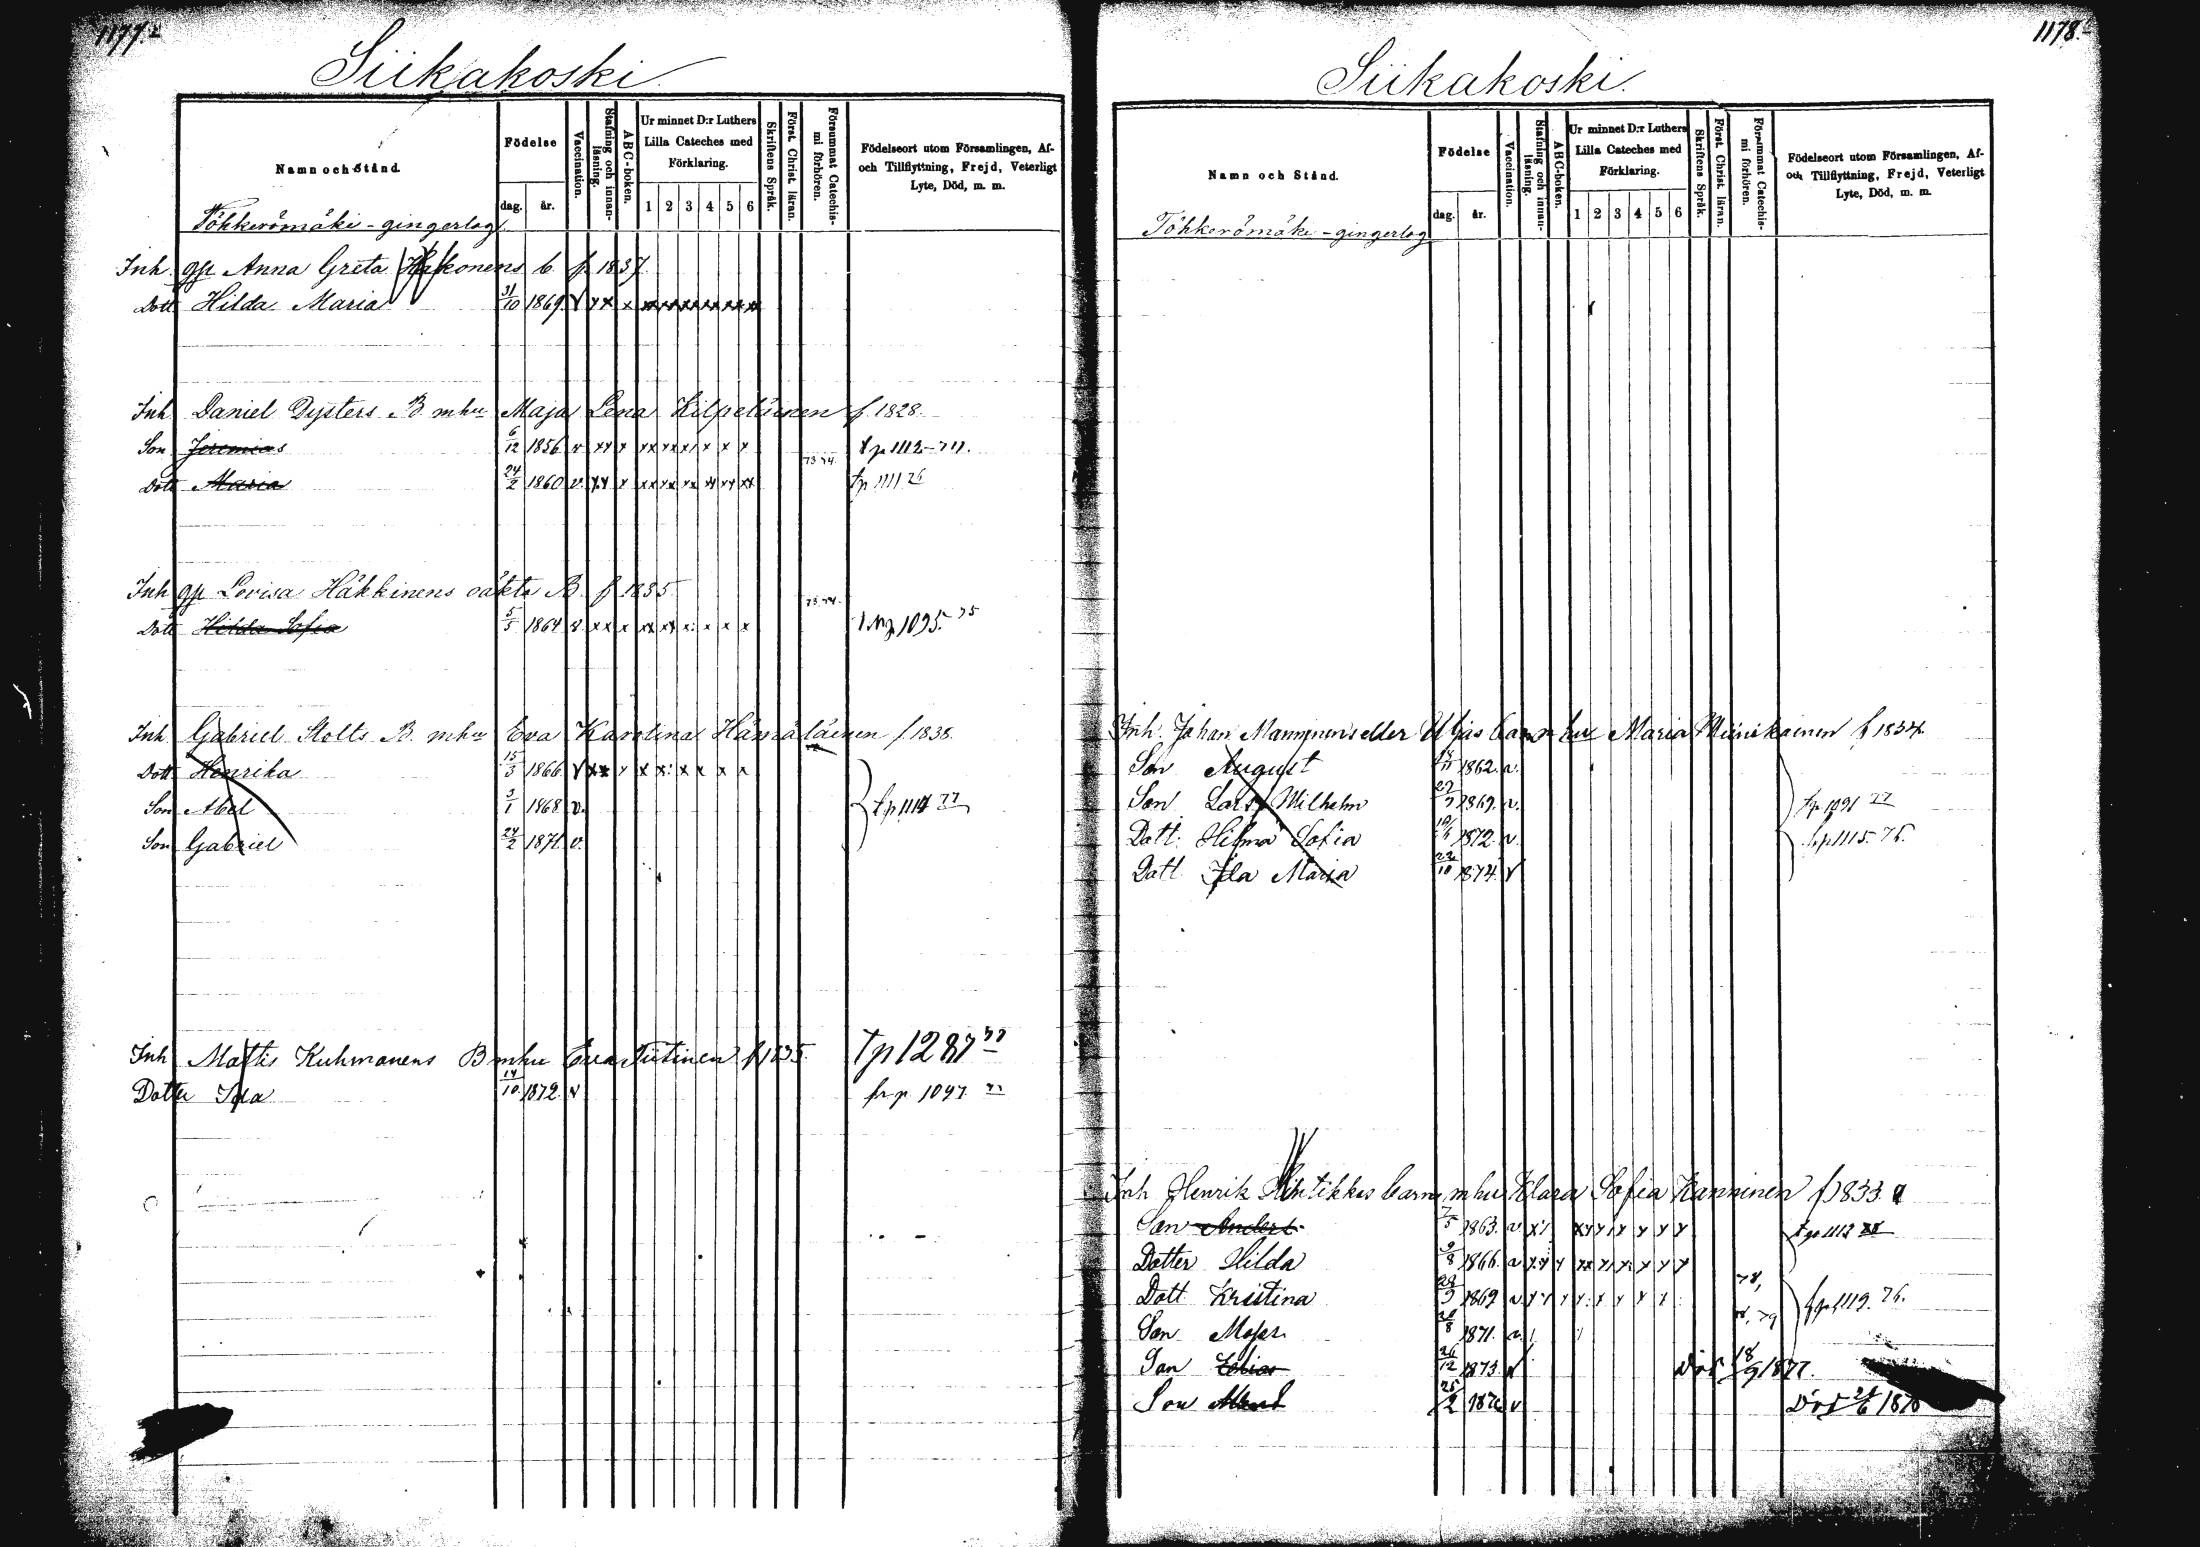 1177.
Siikakoski
Namn och Stånd.
Födelse
dag. år.
Vaccination.
Stafning och innan-läsning.
ABC-boken.
Ur minnet D:r Luthers Lilla Cateches med Förklaring.
1 2 3 4 5 6
Skriftens Språk.
Först. Christ. läran.
Försummat Catechis-mi förhören.
Födelseort utom Församlingen, Af- och Tillflyttning, Frejd, Veterligt Lyte, Död, m. m.
Töhkerömäki - gingerlag
Inh. gp Anna Greta b. f. 1837
Dott Hilda Maria 31/10 1869. v x x x
Inh Daniel Dysters B. mhu Maja Lena Kilpeläinen f. 1828.
Son Jeremias 6/12 1856 v xx x tp 1112-77.
73 74.
Dott Maria 24/2 1860 v. xx x tp 1111 76
Inh gp Lovisa Häkkinens oäkta B. f 1835
73 74.
Dott Hilda Sofia 5/5 1864 v. xx x 1095. 75
Inh Gabriel Stolts B. mhu Eva Karolina Hämäläinen f 1838.
Dott Henrika 15/3 1866 v xx x
Son Abel 3/1 1868 v. tp 1114 77
Son Gabriel 24/2 1871. v.
Inh Mattis Kuhmonens B mhu Eva Tiitinen f 1835. tp 1287
Dotter Ida 14/10 1872. v frp 1097.
1178.
Siikakoski.
Namn och Stånd.
Födelse
dag. år.
Vaccination.
Stafning och innan-läsning.
ABC-boken.
Ur minnet D:r Luthers Lilla Cateches med Förklaring.
1 2 3 4 5 6
Skriftens Språk.
Först. Christ. läran.
Försummat Catechis-mi förhören.
Födelseort utom Församlingen, Af- och Tillflyttning, Frejd, Veterligt Lyte, Död, m. m.
Töhkerömäki - gingerlag
Inh. Johan Manninens eller barn mhu Maria Miinikainen f 1834.
Son August 1862. v.
Son Lars Wilhelm 1869. v. tp 1091 77
Dott. Hilma Sofia 1872. v. frp 1115. 76.
Dott Ida Maria 22/10 1874. v
Inh Henrik Hintikkas barn mhu Klara Sofia Kanninen f 1833.
Son Anders 7/5 1863. v tp 1112
Dotter Hilda 9/8 1866. v
Dott Kristina 28/9 1869 v 78, frp 1119. 76.
Son Moses 1871. v.
Son Tobias 26/12 1873. v Död 18/9 1877.
Son 25/2 1876 v Död 24/6 1878